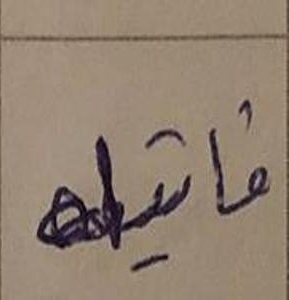 فانيله